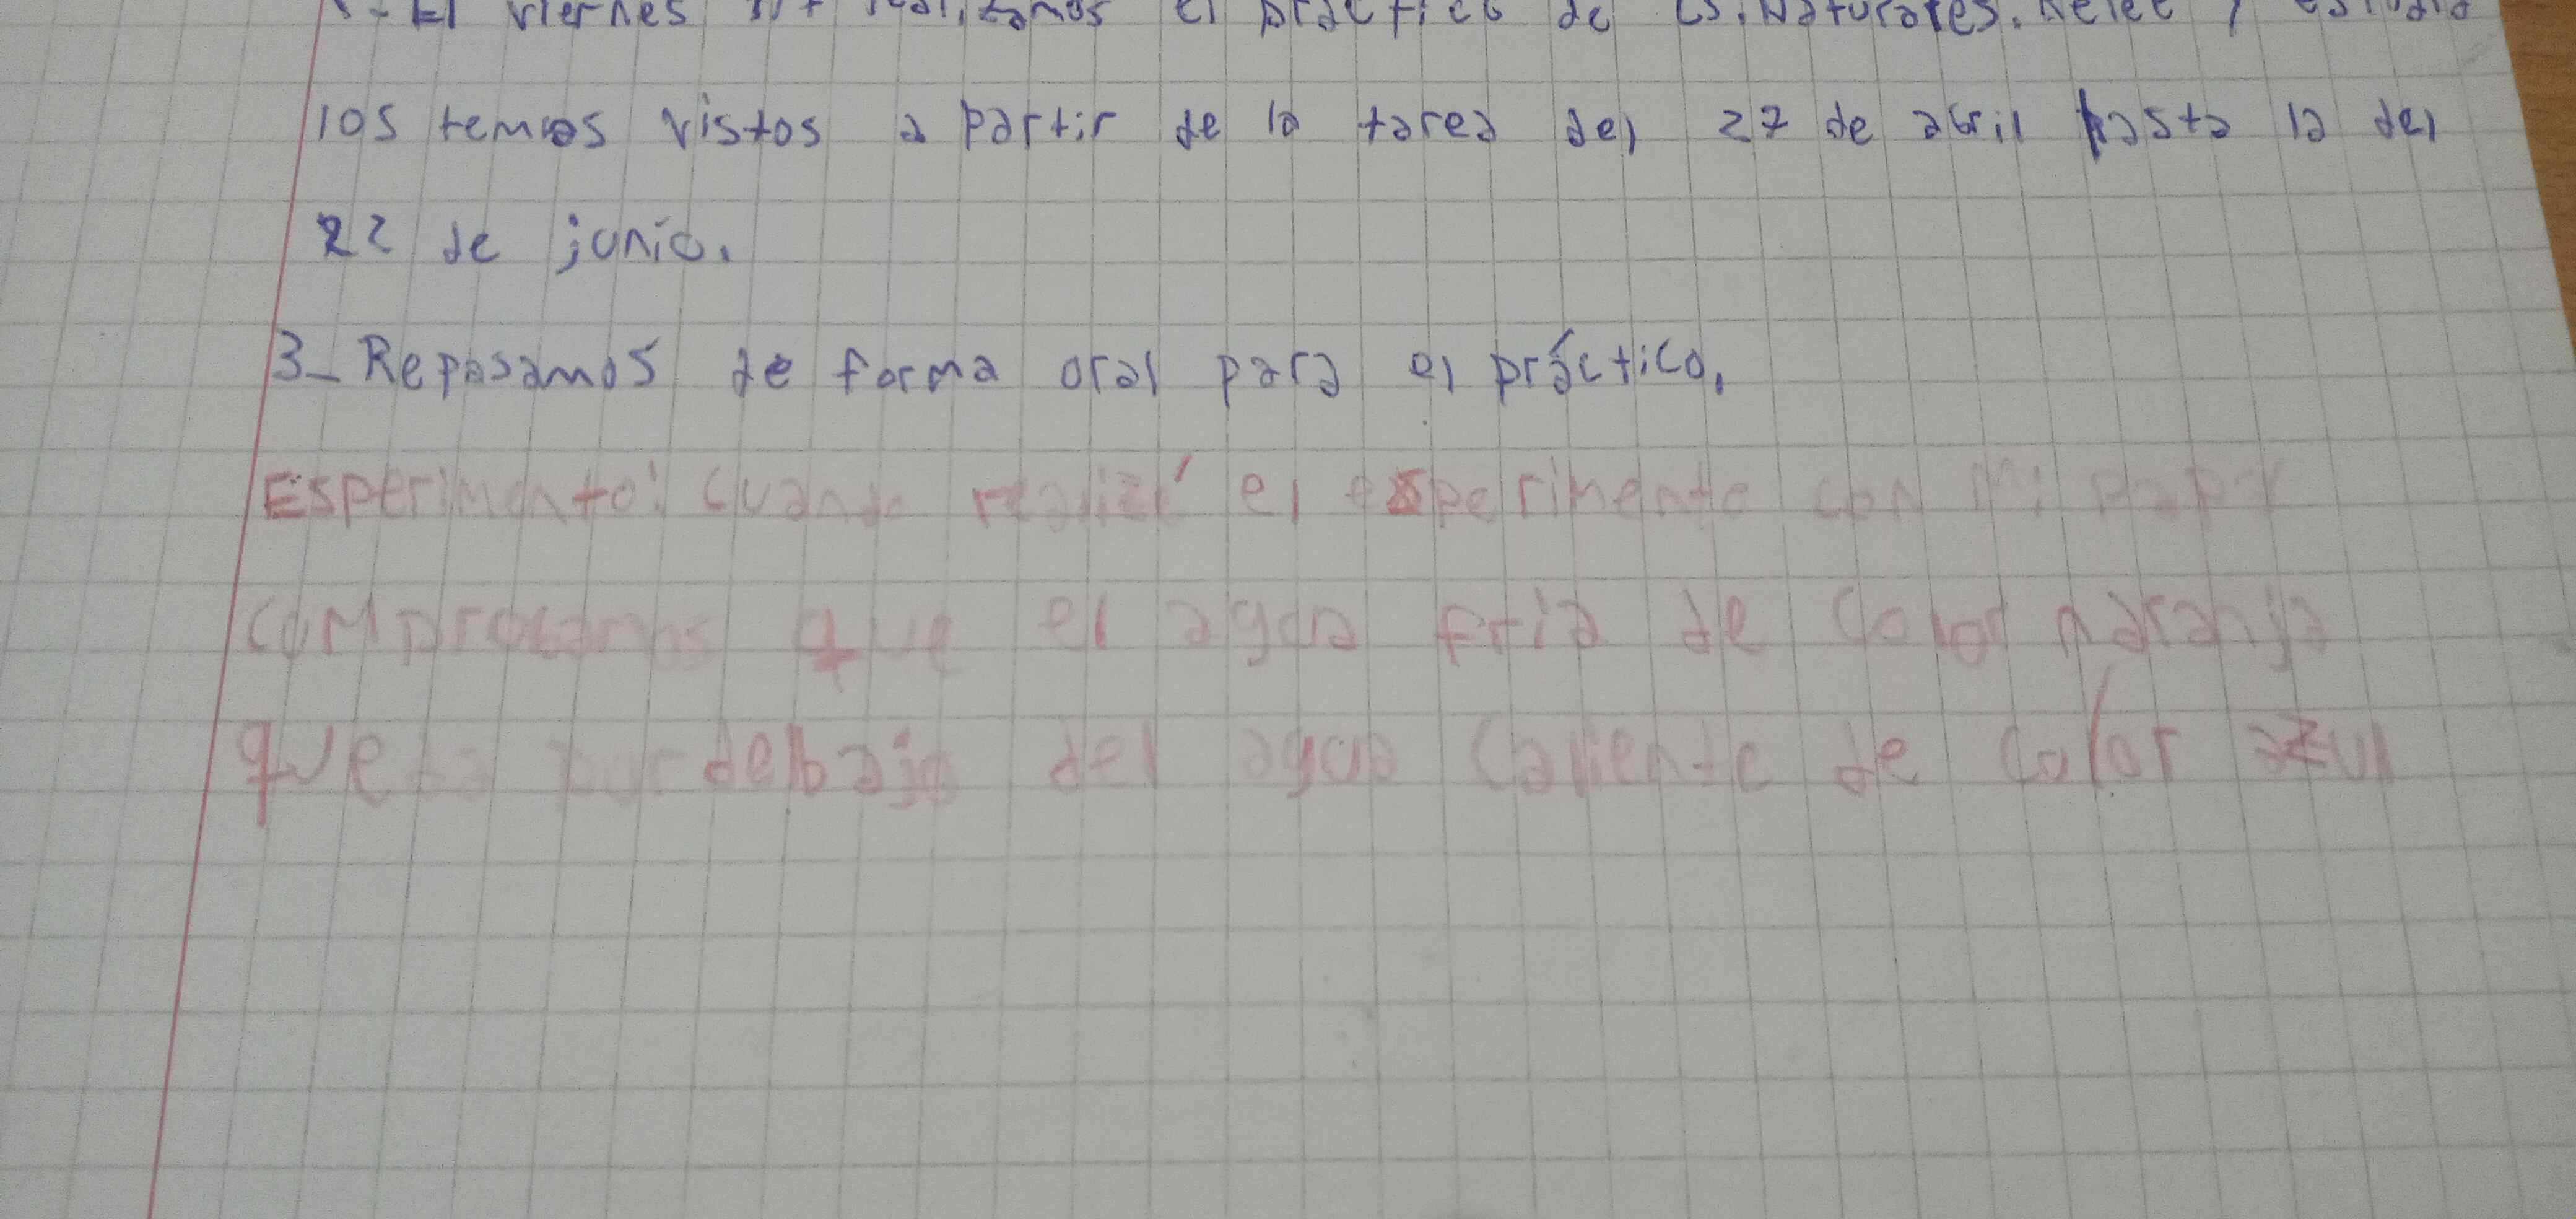 El viernes realizamos el práctico de Cs. Naturales. Releé y estudia
los temas vistos a partir de la tarea del 27 de abril hasta la del
22 de junio.
3_ Repasamos de forma oral para el práctico.
Esperimento: Cuando realizé el esperimento con mi papá
comprobamos que el agua fria de color naranja
queda por debajo del agua caliente de color azul